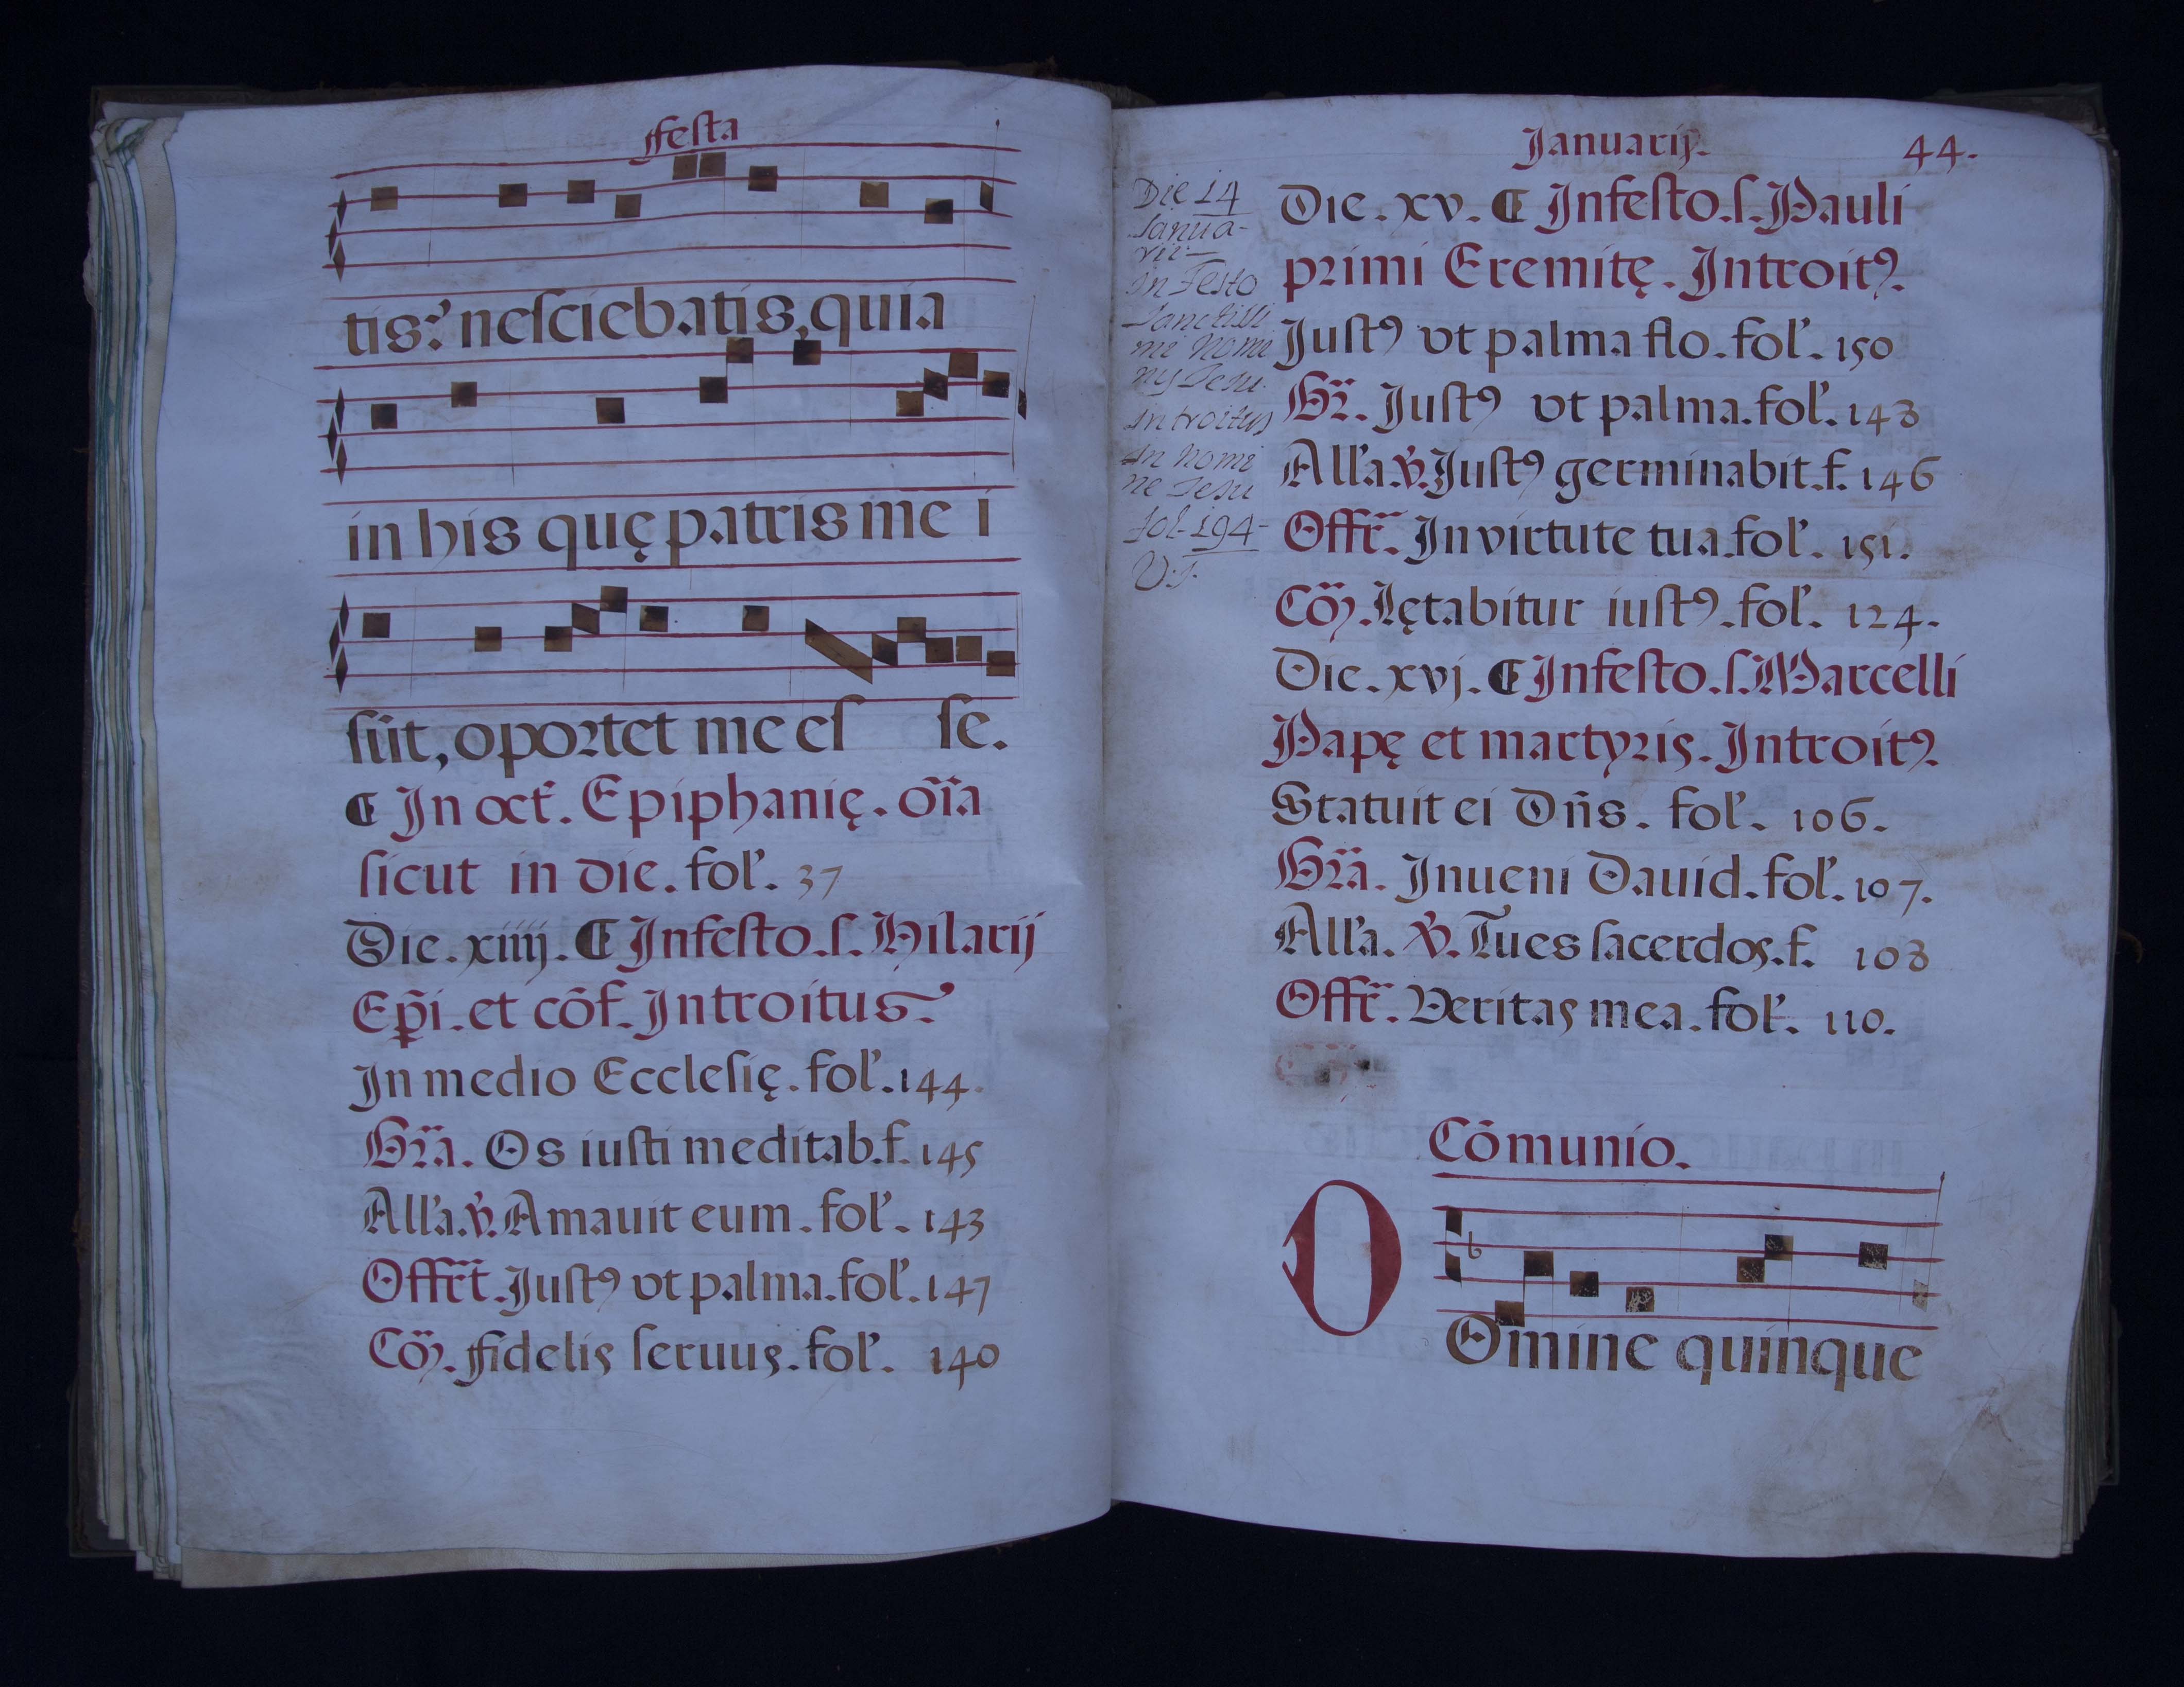 ffesta
tis? nesciebatis, quia
in his quę patris me i
sũt, oportet me es se.
¶ In oct̃. Epiphanię. oĩa
sicut in die. fol'. 37
Die. xiiij. ¶ In festo. s. Hilarij
Ep̃i. et cõf. Introitus.
In medio Ecclesię. fol'. 144.
Gr̃a. Os iusti meditab. f. 145
All'a. ꝟ. Amauit eum. fol'. 143
Offr̃t. Justꝰ vt palma. fol'. 147
Cõ. ffidelis seruus. fol'. 140
Januarij. 44.
Die 14
Janua-
rii-
in Festo
Sanctissi
mi Nomi
nis Jesu.
introitus
in Nomi
ne Jesu
fol-194-
V. J.
Die. xv. ¶ In festo. s. Pauli
primi Eremitę. Introitꝰ.
Justꝰ vt palma flo. fol'. 150
Gr̃. Justꝰ vt palma. fol'. 148
All'a. ꝟ. Justꝰ germinabit. f. 146
Offr̃. In virtute tua. fol'. 151.
Cõ. Lętabitur iustꝰ. fol'. 124.
Die. xvj. ¶ In festo. s. Marcelli
Papę et martyris. Introitꝰ.
Statuit ei Dñs. fol'. 106.
Gr̃a. Inueni Dauid. fol'. 107.
All'a. ꝟ. Tu es sacerdos. f. 108
Offr̃. Veritas mea. fol'. 110.
Cõmunio.
D Omine quinque